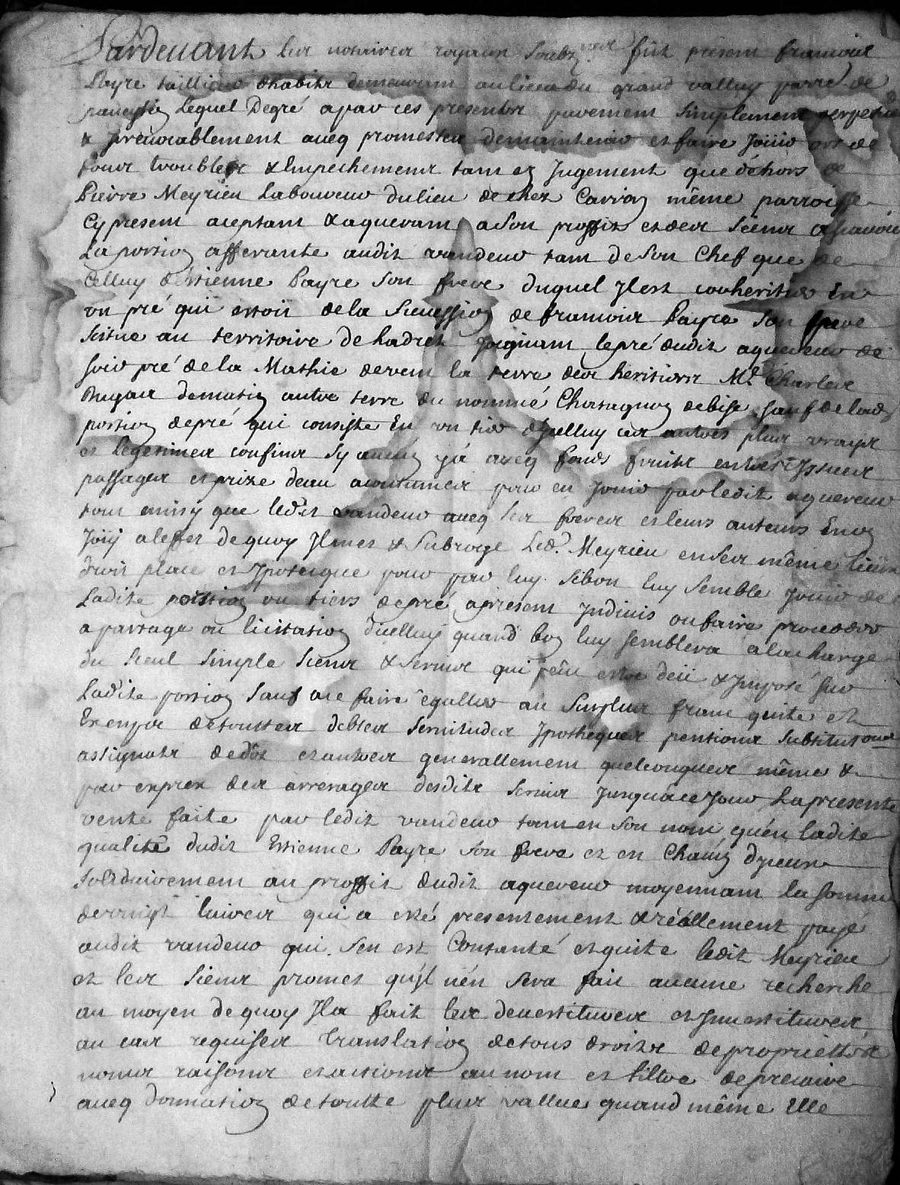 Pardevant les notaires royaux soubz.nes fut présent francois
Payre tailleur dhabits demeurant au lieu du grand valluy parre de
lequel Degré a par ces presentes purement simplement perpetu
& jrrevocablement avecq promesses de maintenir et faire jouir de
tour troubles & Empechements tant en Jugement que déhors
Pierre Meyrieu Laboureur du lieu de chez Carrion même parroisse
Cy présent aceptant & aquerant a son proffit et des siens a savoir
La portion afferante audit vandeur tant de son Chef que de
Celluy dEstienne Payre son frere duquel Jl est coheritier En
un pré qui estoit de la Sucession de francois Payre son frere
Scitue au territoire de joignant le pré dudit aquereur de
soir pré de la Mathie devent la terre des heritiers Me Charles
de matin autre terre du nommé debise sauf de lad
portion de pré qui consiste En un tier dJcelluy ses autres plus vrays
et legitimes confins sy avecq fonds fruits entrées Jssues
passages et prize deau acoutumée pour en Jouir par ledit aquereur
tout ainsy que ledit vandeur avecq ses freres et leurs auteurs En on
Joüy a leffet de quoy Jl met & subroge Led. Meyrieu en ses même lieux
droit place et Jpoteique pour par luy sibon luy semble Jouir de
Ladite portion ou tiers de pré apresent Jndivis ou faire proceder
a partage ou licitation dJcelluy quand bon luy semblera a la charge
du seul simple siens & servis qui estre deü & Jmposé sur
Ladite portion sans au surplus franc quite et
Exempt de touttes debtes servitudes Jpotheques pentions substitutions
assignats de dot et autres generallement quelconques même &
par exprex des arrerages desdits servis Jusquace Jour La presente
vente faite par ledit vandeur tant en son nom quén ladite
qualité dudit Estienne Payre son frere et en Chacun dJceux
solidairement au proffit dudit aquereur moyennant la somme
de vingt livres qui a esté presentement & réellement payé
audit vandeur qui sen est Contenté et quite ledit Meyrieu
et les siens promet quJl nén sera fait aucune recherche
au moyen de quoy Jl a fait les devestitures et Jnvestitures
au cas requises translation de tous droits de proprietté
noms raisons et actions au nom et tiltre de precaire
avecq donnation de toutte plus vallue quand même Elle